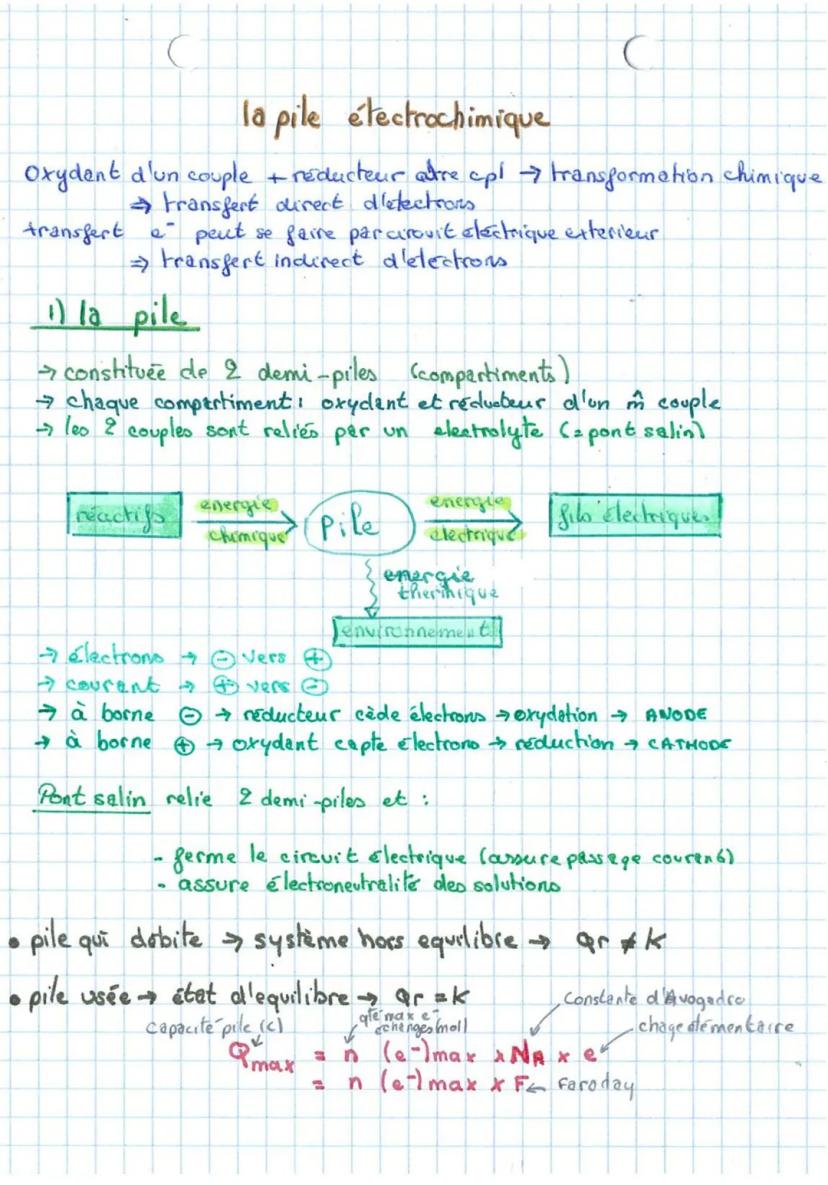 la pile électrochimique
Oxydant d'un couple + réducteur autre cpl → transformation chimique
⇒ transfert direct d'électrons
transfert e⁻ peut se faire par circuit électrique exterieur
⇒ transfert indirect d'électrons
1) la pile
→ constituée de 2 demi-piles (compartiments)
→ chaque compartiment : oxydant et réducteur d'un m̂ couple
→ les 2 couples sont reliés par un electrolyte (= pont salin)
réactifs energie chimique pile energie electrique fils électriques
energie
thermique
environnement
→ électrons → ⊖ vers ⊕
→ courant → ⊕ vers ⊖
→ à borne ⊖ → réducteur cède électrons → oxydation → ANODE
→ à borne ⊕ → oxydant capte électrons → réduction → CATHODE
Pont salin relie 2 demi-piles et :
- ferme le circuit électrique (assure passage courant)
- assure électroneutralité des solutions
• pile qui débite → système hors equilibre → Qr ≠ K
• pile usée → état d'equilibre → Qr = K
Constante d'Avogadro
capacité pile (c) qté max e⁻ échangés (mol) chage élémentaire
Qmax = n (e⁻) max × NA × e
= n (e⁻) max × F ← Faraday